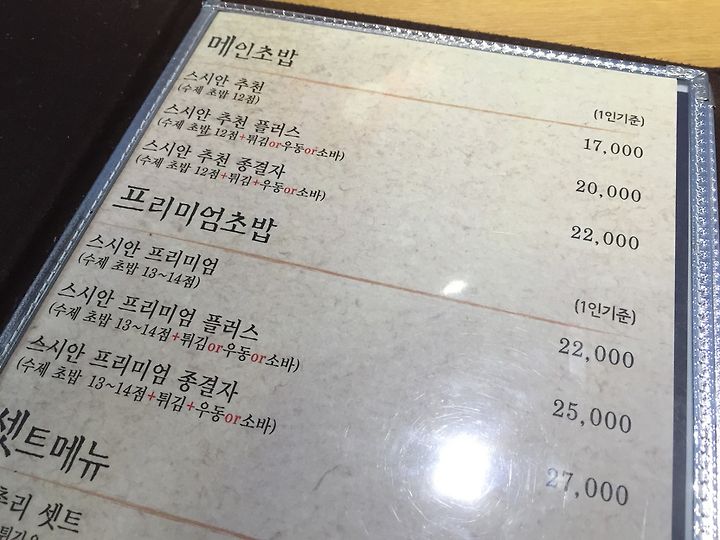 메인초밥
(1인기준)
스시안 추천
(수제 초밥 12점)
17,000
스시안 추천 플러스
(수제 초밥 12점+튀김or우동or소바)
20,000
스시안 추천 종결자
(수제 초밥 12점+튀김+우동or소바)
22,000
프리미엄초밥
(1인기준)
스시안 프리미엄
(수제 초밥 13~14점)
22,000
스시안 프리미엄 플러스
(수제 초밥 13~14점+튀김or우동or소바)
25,000
스시안 프리미엄 종결자
(수제 초밥 13~14점+튀김+우동or소바)
27,000
셋트메뉴
셋트